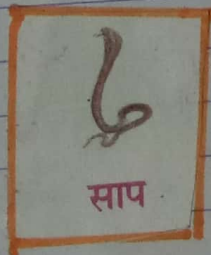 साप